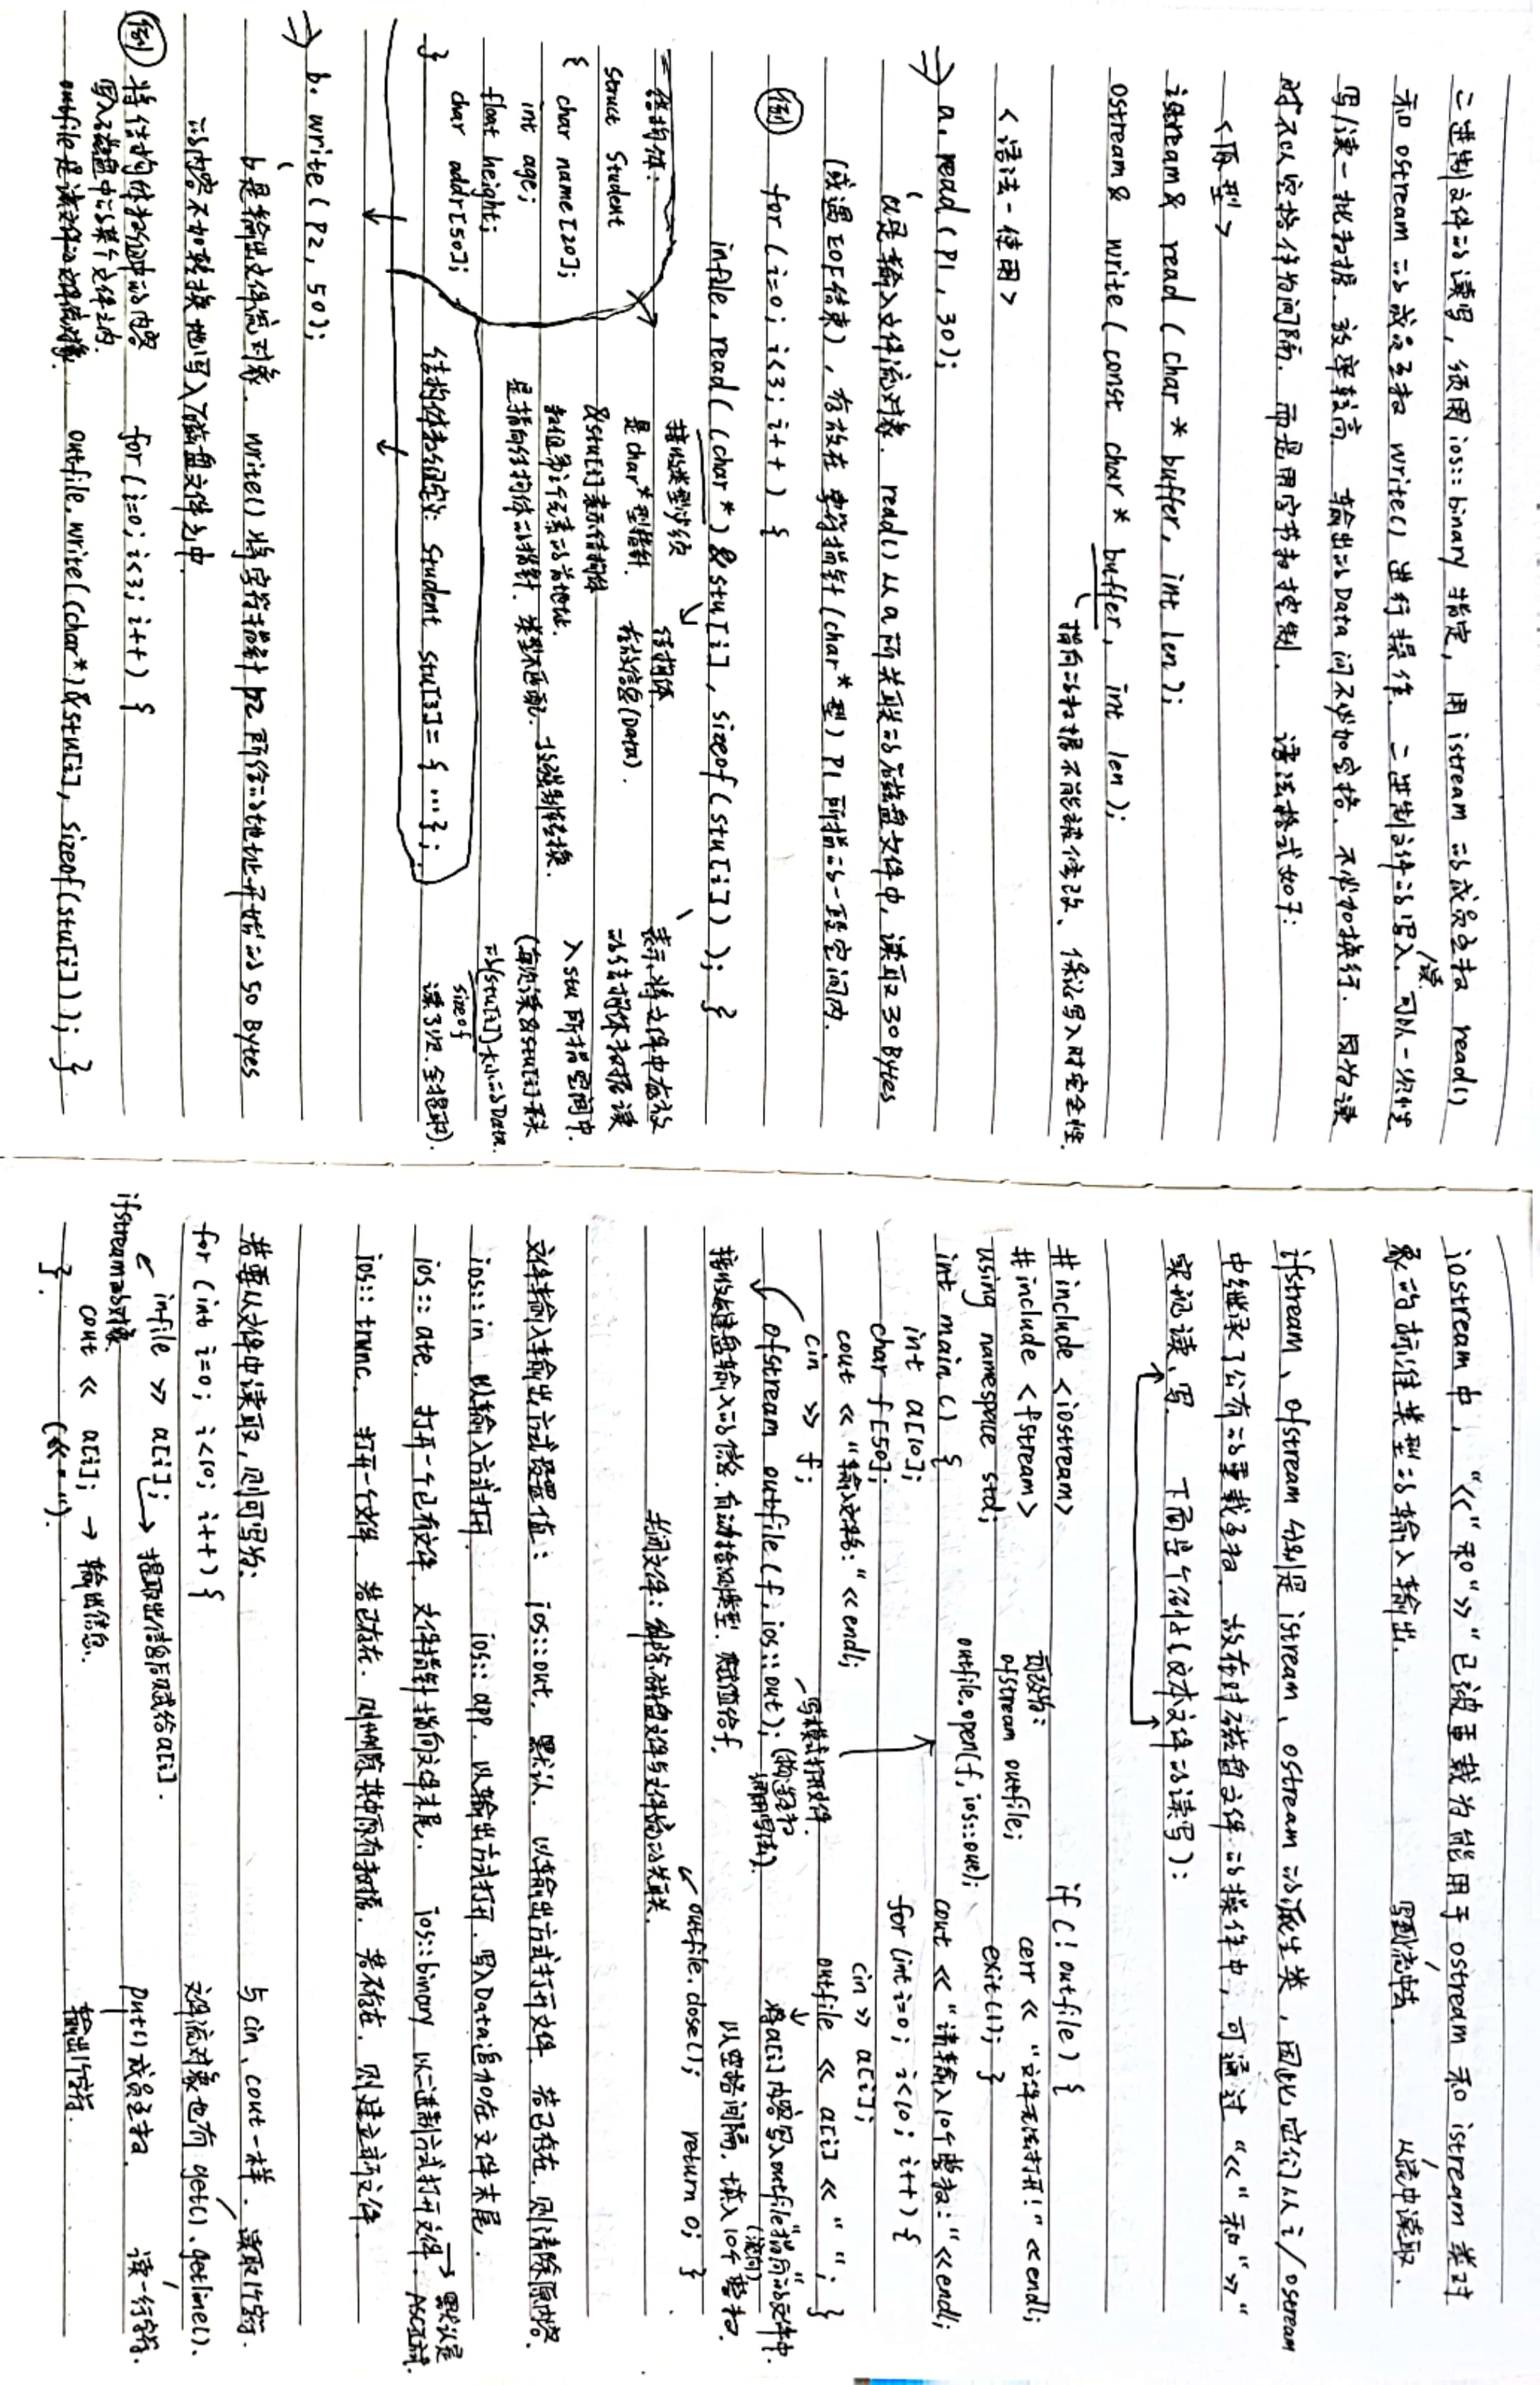 二进制文件的读写，须用 ios::binary 指定，用 istream 的成员函数 read()
和 ostream 的成员函数 write() 进行操作. 二进制文件的写入/读. 可以一次性
写/读一批数据. 效率较高. 输出的Data间不必加空格. 不必加换行. 因为读
时不以空格作为间隔. 而是用字节数控制. 语法格式如下:
<原型>
istream& read ( char * buffer, int len );
ostream & write ( const char * buffer, int len );
指向的数据不能被修改、保证写入时安全性.
<语法-使用>
⇒ a. read ( P1, 30 );
a是输入文件流对象. read() 从 a 所关联的磁盘文件中, 读取30 Bytes
(或遇EOF结束), 存放在 字符指针 (char* 型) P1 所指的一段空间内.
例 for ( i=0; i<3; i++ ) {
infile. read( (char *) & stu[i], sizeof(stu[i]) ); }
接收类型必须
是char*型指针.
&stu[i]表示结构体
数组第i个元素的首地址.
是指向结构体的指针. 类型不匹配. 故强制转换.
结构体.
存放信息(Data).
表示将文件中存放
的结构体数据读
入stu 所指空间中.
(每次读&stu[i]开头
的(stu[i])大小的Data.
sizeof
读3次.全提取).
结构体:
struct Student
{ char name[20];
int age;
float height;
char addr[50];
}
结构体数组定义: Student stu[3]= { … };
⇒ b. write ( P2, 50 );
b是输出文件流对象. write() 将字符指针 p2 所给的地址开始的 50 Bytes
的内容不加转换地写入磁盘文件之中.
例 将结构体数组中的内容
写入磁盘中的某个文件之内.
outfile是该文件的文件流对象.
for ( i=0; i<3; i++ ) {
outfile. write( (char*) &stu[i], sizeof(stu[i]) ); }
iostream 中, “<<” 和 “>>” 已被重载为能用于 ostream 和 istream 类对
象的标准类型的输入输出. 写到流中去. 从流中读取.
ifstream、ofstream 分别是 istream、ostream 的派生类, 因此它们从 i/ostream
中继承了公有的重载函数. 故在对磁盘文件的操作中, 可通过 “<<” 和 “>>”
实现读、写. 下面是个例子(文本文件的读写):
# include <iostream>
# include <fstream>
using namespace std;
int main () {
int a[10];
char f[50];
cout << “输入文件名:” << endl;
cin >> f;
ofstream outfile( f, ios::out);
接收键盘输入的信息.自动检测类型. 赋值给f.
可改为:
ofstream outfile;
outfile.open(f, ios::out);
写模式打开文件.
(构造函数
调用写法).
if ( ! outfile ) {
cerr << “文件无法打开!” << endl;
exit(1); }
cout << “请输入10个整数:” << endl;
for (int i=0; i<10; i++) {
cin >> a[i];
outfile << a[i] << “ ”; }
将a[i]内容写入outfile“指向”的文件中.
(流向)
以空格间隔. 填入10个整数.
outfile.close(); return 0; }
关闭文件: 解除磁盘文件与文件流的关联.
文件输入输出方式设置值: ios::out. 默认. 以输出方式打开文件. 若已存在. 则清除原内容.
ios::in 以输入方式打开. ios::app. 以输出方式打开. 写入Data追加在文件末尾.
ios::ate. 打开一个已有文件. 文件指针指向文件末尾. ios::binary 以二进制方式打开文件. → 默认是
ASCII方式.
ios::trunc. 打开一个文件. 若已存在. 则删除其中原有数据. 若不存在. 则建立新文件.
若要从文件中读取, 则可写为:
for (int i=0; i<10; i++) {
infile >> a[i]; → 提取出信息后赋给a[i].
ifstream的对象.
cout << a[i]; → 输出信息.
}. (<<“ ”).
与 cin、cout 一样. 读取1个字符.
文件流对象也有 get().getline().
put() 成员函数. 读一行字符.
输出1个字符.